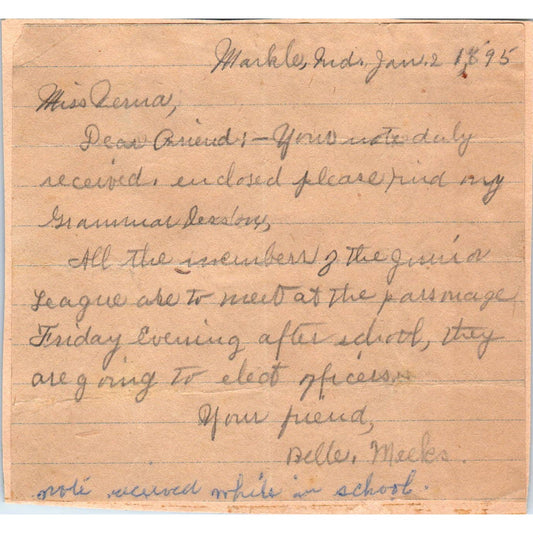 Markle, Ind. Jan. 2 1895
Miss Verna,
Dear Friend:- Your note duly
received. enclosed please find my
Grammar Lesson,
All the members of the Junior
League are to meet at the parsonage
Friday Evening after school, they
are going to elect officers.
Your friend,
Belle. Meeks.
note received while in school.